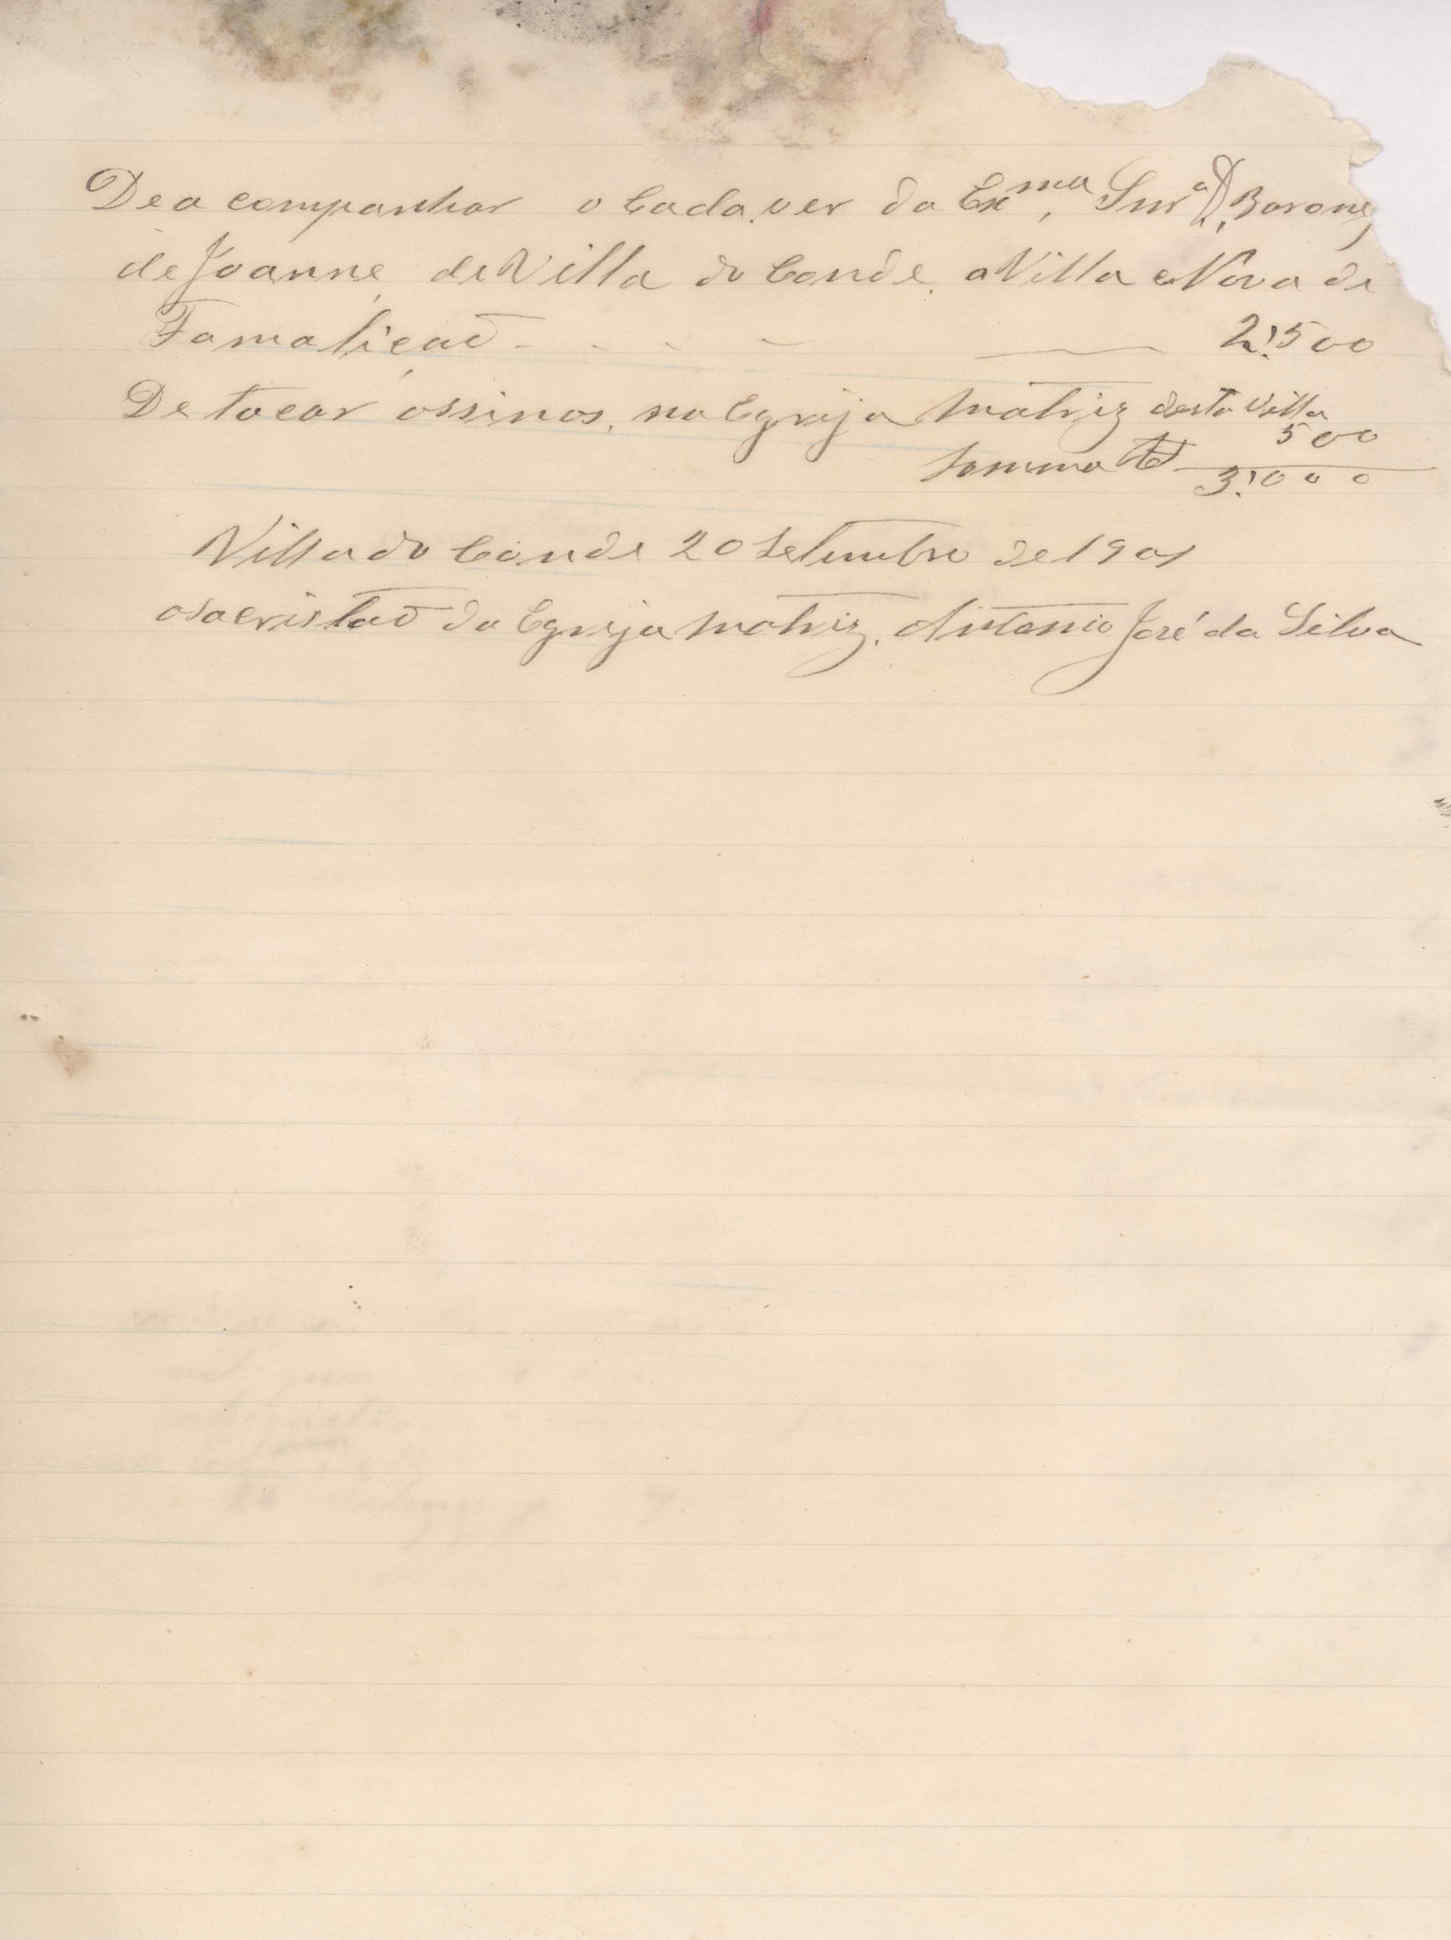 De a companhar o Cadaver da Exma, Snra D. Baronez
de Joanne, de Villa do Conde, a Villa Nova de
Famalicaõ - - - - — 2!500
De tocar ossinos, na Egreja Matriz desta Villa
500
Somma Rs 3!000
Villa do Conde 20 Setembro de 1901
osacristaõ da Egreja Matriz, Antonio José da Silva